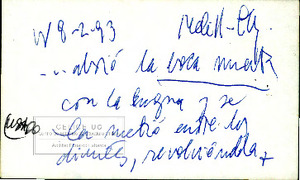 8-2-93
...abrió la boca muerta
con la lengua y se
la metió entre los
dientes, revolviéndola